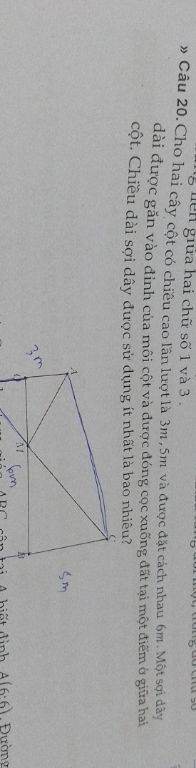 giữa hai chữ số 1 và 3.
» Câu 20. Cho hai cây cột có chiều cao lần lượt là 3m, 5m và được đặt cách nhau 6m. Một sợi dây
dài được gắn vào đỉnh của mỗi cột và được đóng cọc xuống đất tại một điểm ở giữa hai
cột. Chiều dài sợi dây được sử dụng ít nhất là bao nhiêu?
A
C
3m
5m
M
B
6m
ABC cân tại A biết đỉnh A(6;6), Đường